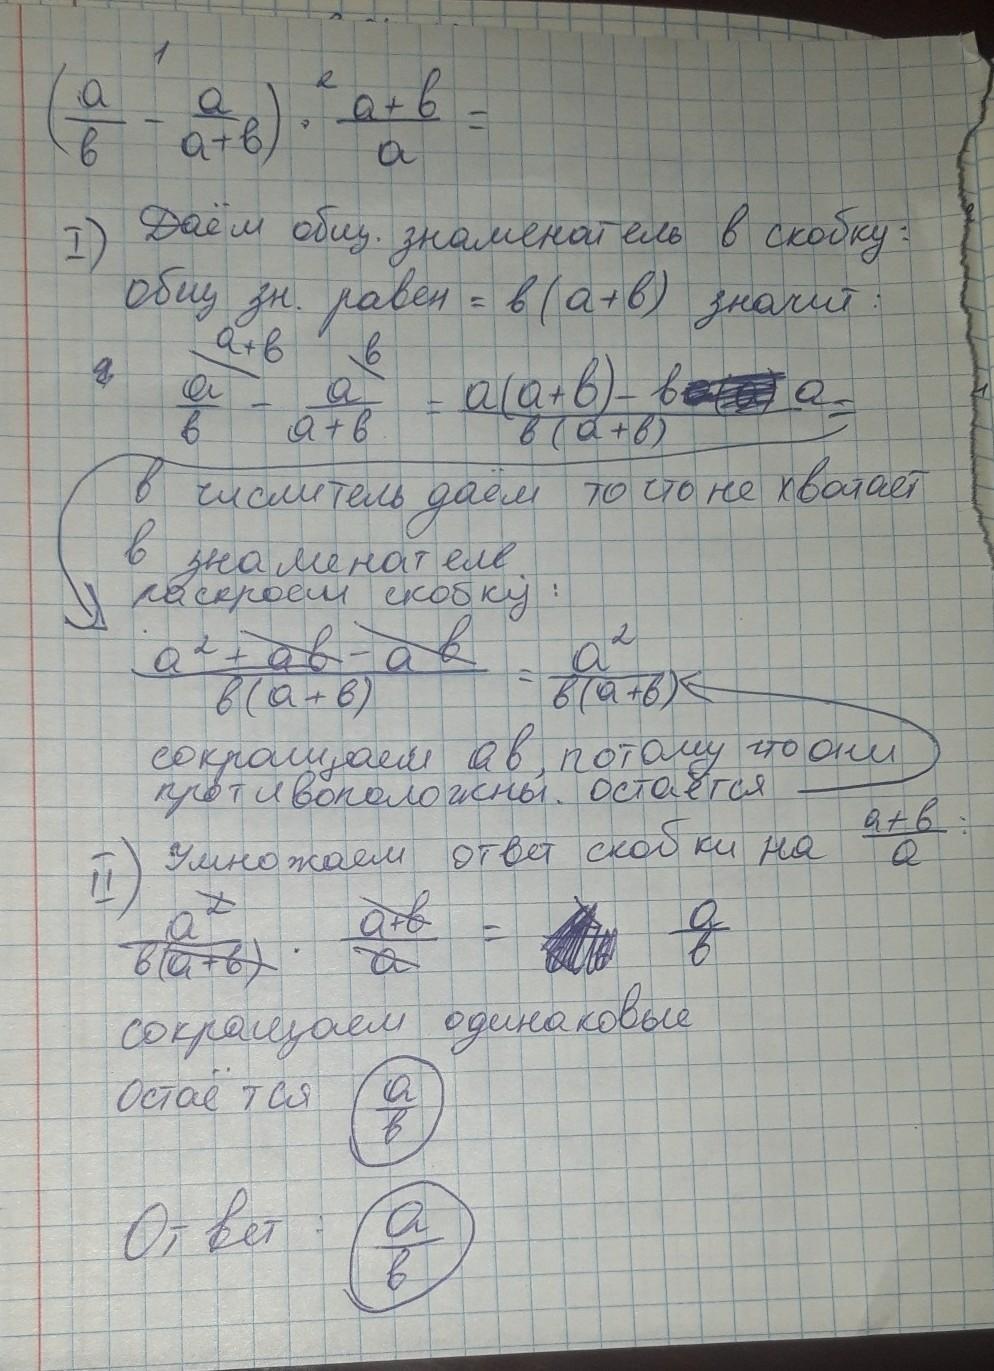 1 2
(a/в - a/(a+в)) · (a+в)/a =
I) Даём общ. знаменатель в скобку:
общ зн. равен = в(a+в) значит:
a+в в
a/в - a/(a+в) = (a(a+в) - в a)/(в(a+в)) =
в числитель даём то что не хватает
в знаменателе
раскроем скобку:
(a² + aв - aв)/(в(a+в)) = a²/(в(a+в))
сокращаем aв, потому что они
противоположны. остаётся
II) Умножаем ответ скобки на (a+в)/a :
a²/(в(a+в)) · (a+в)/a = a/в
сокращаем одинаковые
остаётся a/в
Ответ: a/в